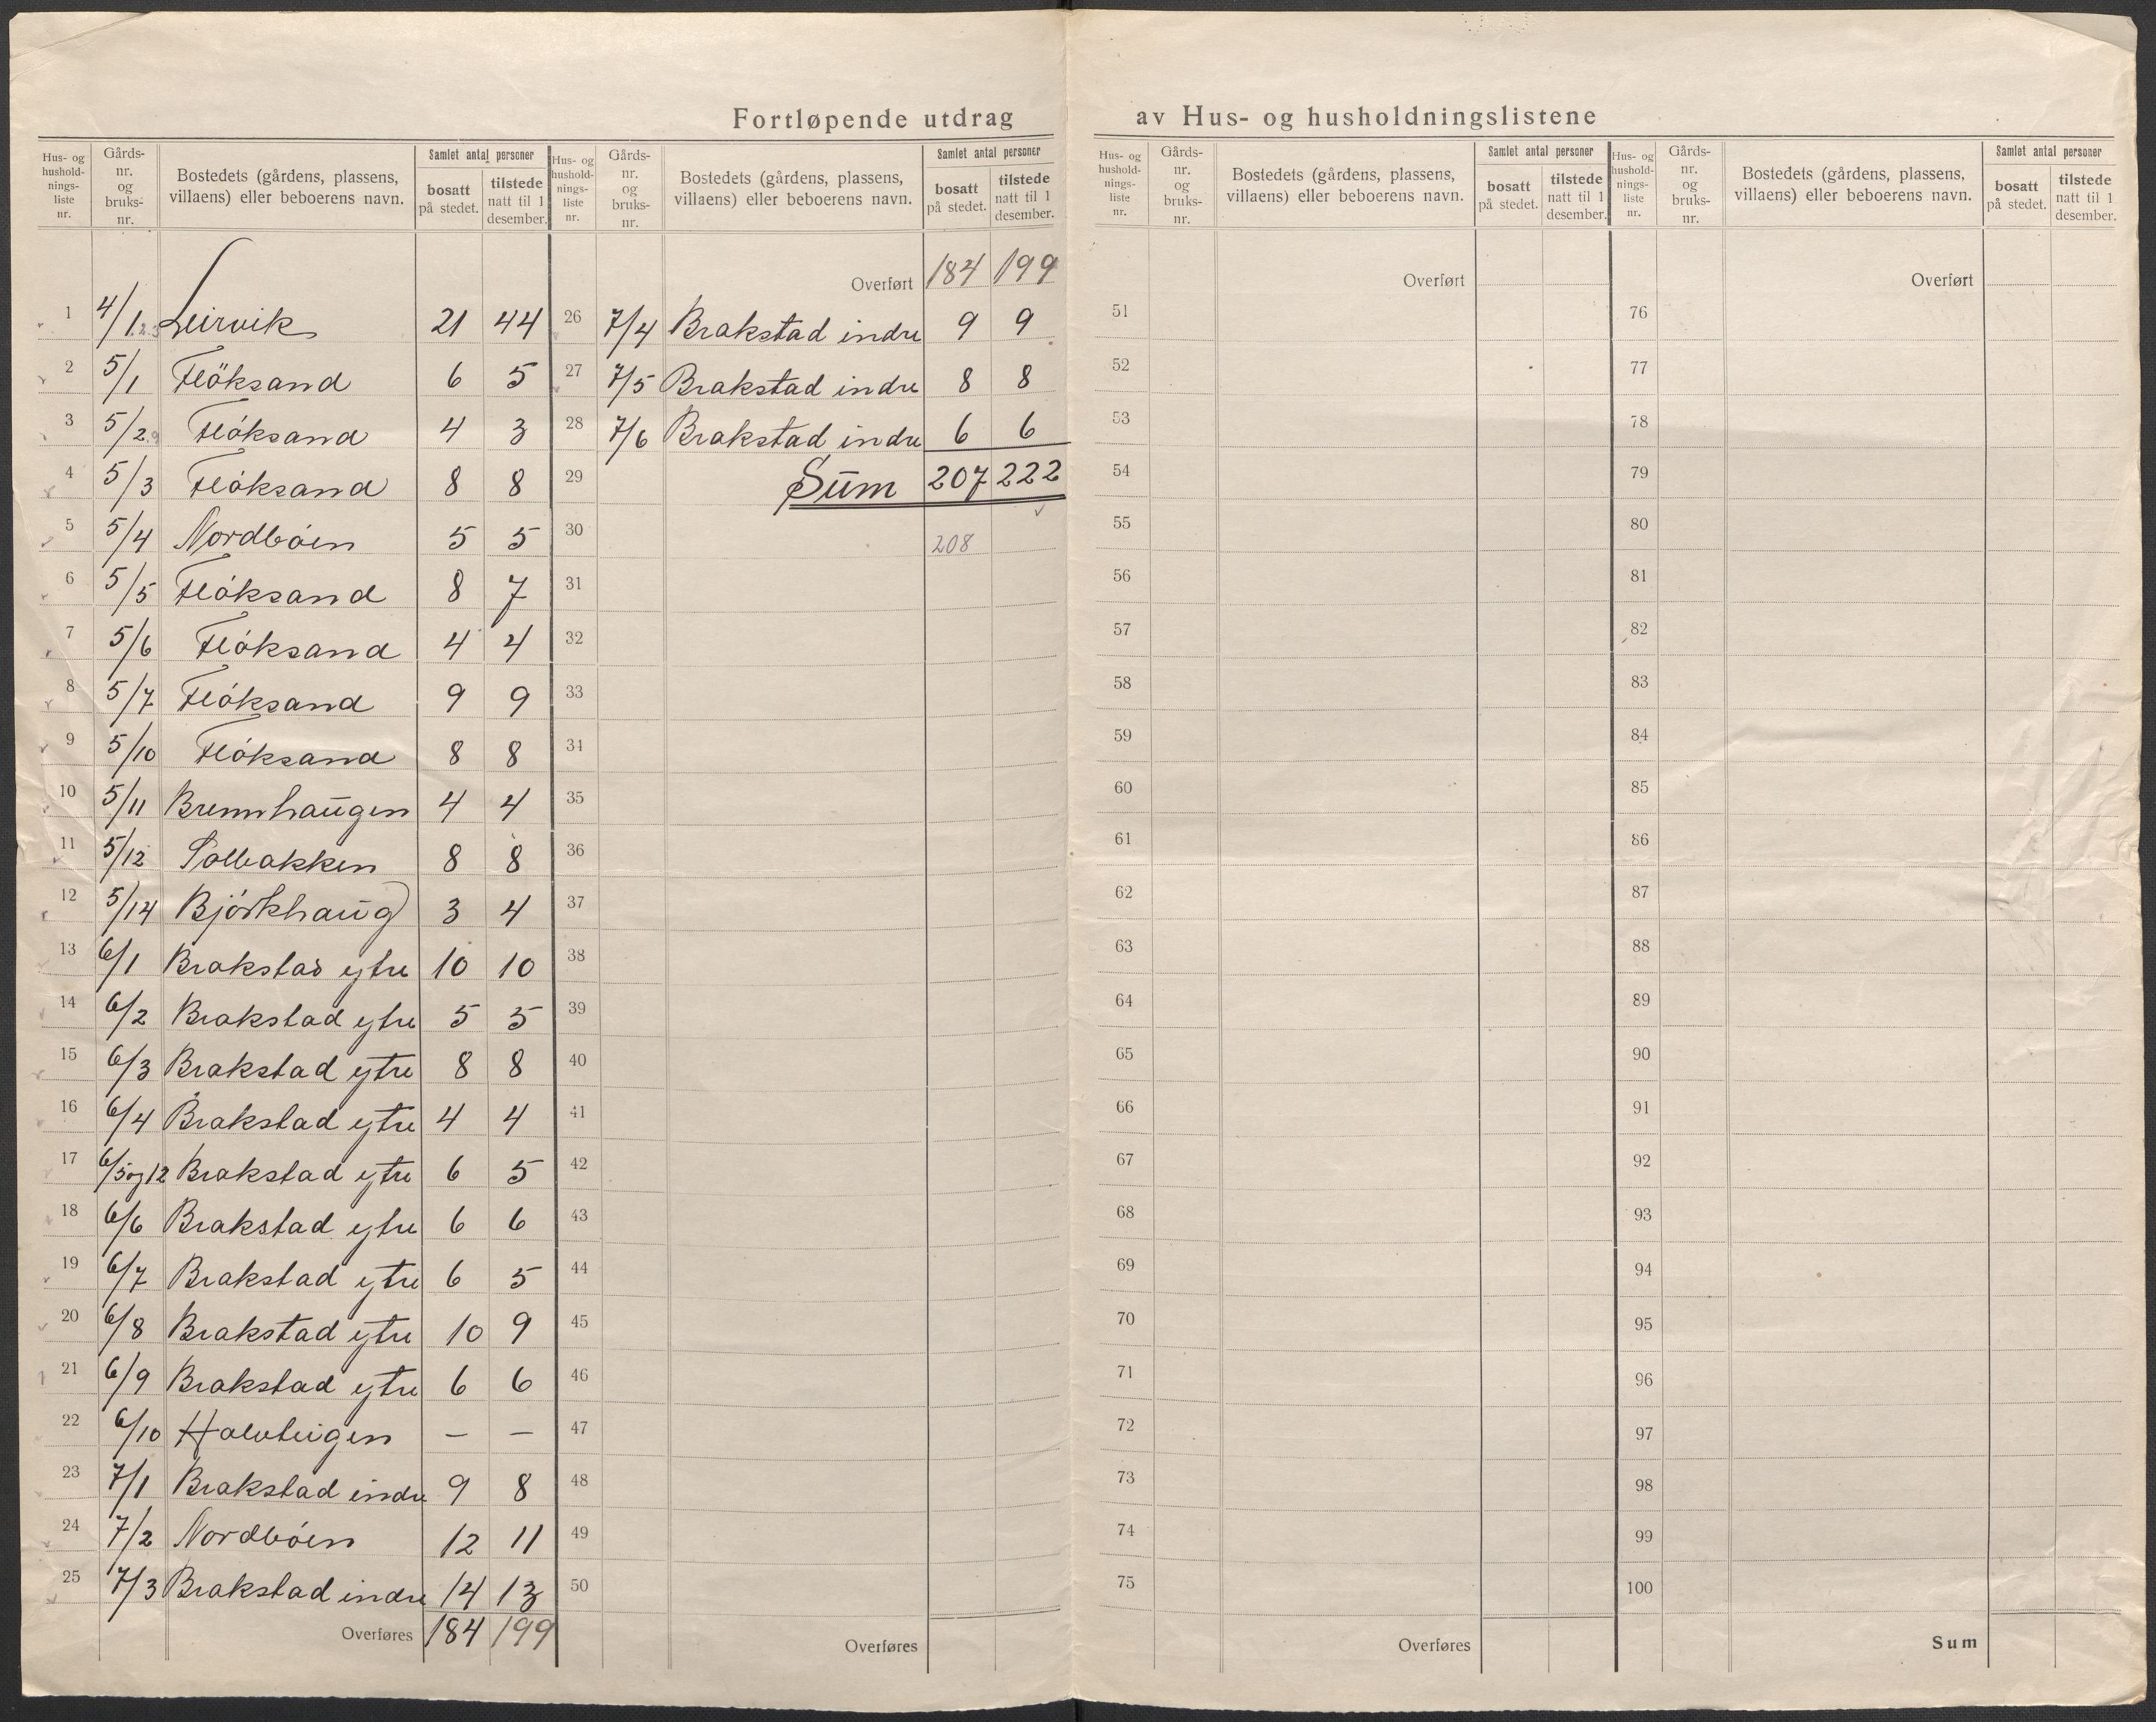 Fortløpende utdrag av Hus- og husholdningslistene
Hus- og hushold-nings-liste nr. Gårds-nr. og bruks-nr. Bostedets (gårdens, plassens, villaens) eller beboerens navn. Samlet antal personer bosatt på stedet. tilstede natt til 1 desember.
1 4/1.2.3 Leirvik 21 44
2 5/1 Flöksand 6 5
3 5/2.9 Flóksand 4 3
4 5/3 Flóksand 8 8
5 5/4 Nordbóen 5 5
6 5/5 Flóksand 8 7
7 5/6 Flóksand 4 4
8 5/7 Flóksand 9 9
9 5/10 Flóksand 8 8
10 5/11 Brennhaugen 4 4
11 5/12 Solbakken 8 8
12 5/14 Bjórkhaug 3 4
13 6/1 Brakstad ytre 10 10
14 6/2 Brakstad ytre 5 5
15 6/3 Brakstad ytre 8 8
16 6/4 Brakstad ytre 4 4
17 6/5 og 12 Brakstad ytre 6 5
18 6/6 Brakstad ytre 6 6
19 6/7 Brakstad ytre 6 5
20 6/8 Brakstad ytre 10 9
21 6/9 Brakstad ytre 6 6
22 6/10 – –
23 7/1 Brakstad indre 9 8
24 7/2 Nordbóen 12 11
25 7/3 Brakstad indre 14 13
Overføres 184 199
Hus- og hushold-nings-liste nr. Gårds-nr. og bruks-nr. Bostedets (gårdens, plassens, villaens) eller beboerens navn. Samlet antal personer bosatt på stedet. tilstede natt til 1 desember.
Overført 184 199
26 7/4 Brakstad indre 9 9
27 7/5 Brakstad indre 8 8
28 7/6 Brakstad indre 6 6
29 Sum 207 222
30 208
31
32
33
34
35
36
37
38
39
40
41
42
43
44
45
46
47
48
49
50
Overføres
Hus- og hushold-nings-liste nr. Gårds-nr. og bruks-nr. Bostedets (gårdens, plassens, villaens) eller beboerens navn. Samlet antal personer bosatt på stedet. tilstede natt til 1 desember.
Overført
51
52
53
54
55
56
57
58
59
60
61
62
63
64
65
66
67
68
69
70
71
72
73
74
75
Overføres
Hus- og hushold-nings-liste nr. Gårds-nr. og bruks-nr. Bostedets (gårdens, plassens, villaens) eller beboerens navn. Samlet antal personer bosatt på stedet. tilstede natt til 1 desember.
Overført
76
77
78
79
80
81
82
83
84
85
86
87
88
89
90
91
92
93
94
95
96
97
98
99
100
Sum